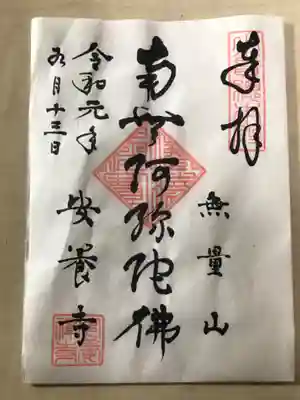 奉拝
無量山
南無阿弥陀佛
安養寺
令和元年
九月十三日